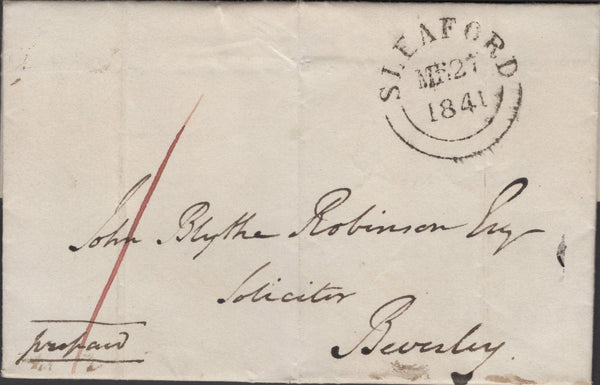 SLEAFORD
MR27
1841
John Blythe Robinson Esq
Solicitor
Beverley.
prepaid